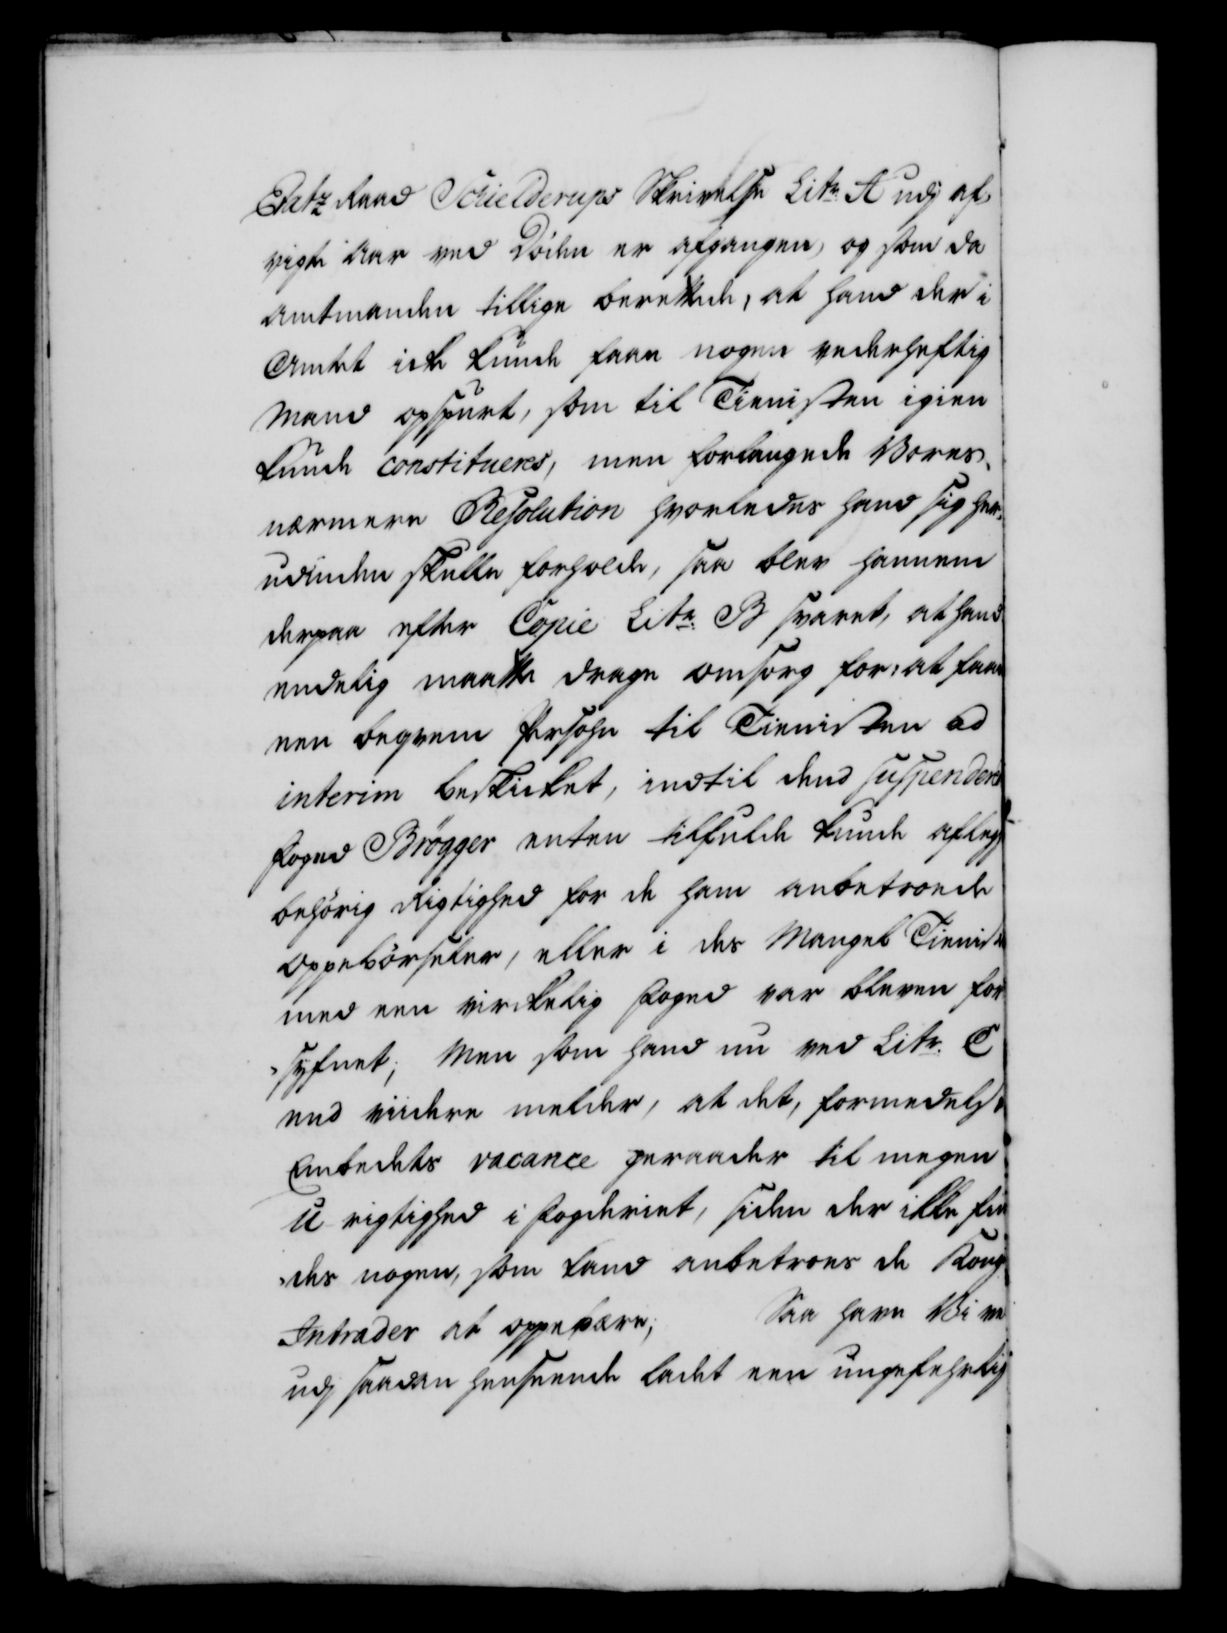 Etatz Raad Schielderups Skrivelse Litr. A udj af-
vigte Aar ved Døden er afgangen, og som da
Amtmanden tillige berettede, at hand der i
Amtet icke kunde faae nogen vederheftig
Mand opspurt, som til Tienisten igien
kunde constitueres, men forlangede Vores
nærmere Resolution hvorledes hand sig her-
udinden skulle forholde, saa blev hannem
derpaa efter Copie Litr. B svaret, at hand
endelig maatte drage omsorg for, at faae
een beqvem Persohn til Tienisten ad
interim beskicket, indtil dend suspendere
Foged Brøgger enten tilfulde kunde aflegg
behörig Rigtighed for de ham anbetroede
Oppebörseler, eller i des Mangel Tienist
med een virckelig Foged var bleven for
-syfnet; Men som hand nu ved Litr. C
end viidere melder, at det, formedelst
Embedets vacance geraader til megen
U-rigtighed i Fogderiet, siden der ikke fin
-des nogen, som kand anbetroes de Kong
Intrader at oppebære; Saa have Vi
udj saadan henseende ladet een ungefehrlig